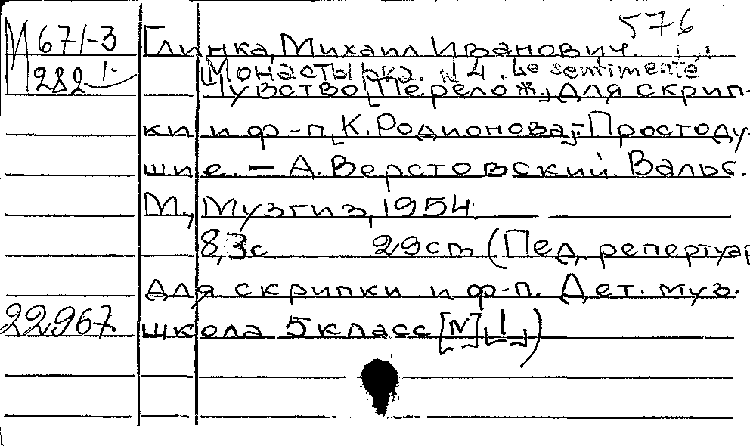 576
М 671-3 Глинка, Михаил Иванович.
М 282 Монастырка. N 4. Le sentimente
Чувство [Перелож. для скрип-
ки и ф-п. К. Родионова,- Простоду-
шие. — А. Верстовский Вальс.
М., Музгиз, 1954
8,3с 29cm (Пед. репертуар
для скрипки и ф-п. Дет. муз.
22967 школа 5 класс [N] [1])